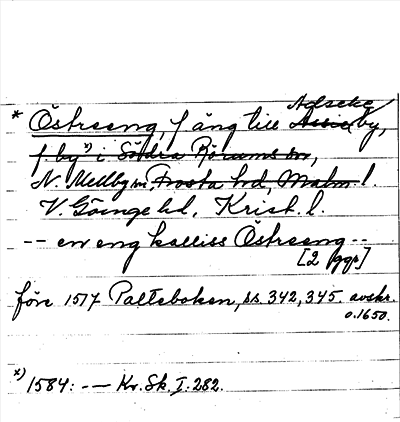 Adseke
* Östraeng, f äng till Assie by,
f. by x) i Södra Rörums sn,
N. Mellby sn, Frosta hd, Malm l.
V. Göinge hd, Krist. l.
-- en eng kalliss Östraeng --
[2 ggr]
före 1517 Palteboken, ss. 342, 345. avskr.
o. 1650.
x) 1584: -- Kr. Sk. I. 282.